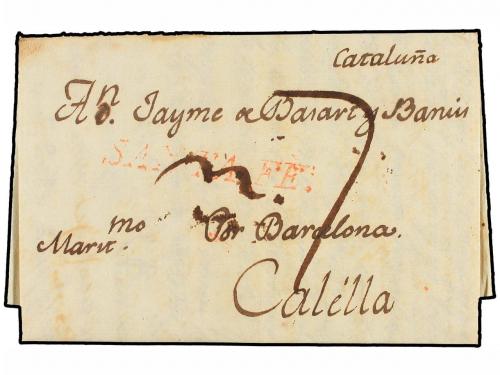 Cataluña
A Dn. Jayme de Basart y Banus
SANTA FE.
7
Maritmo. Por Barcelona.
Calélla